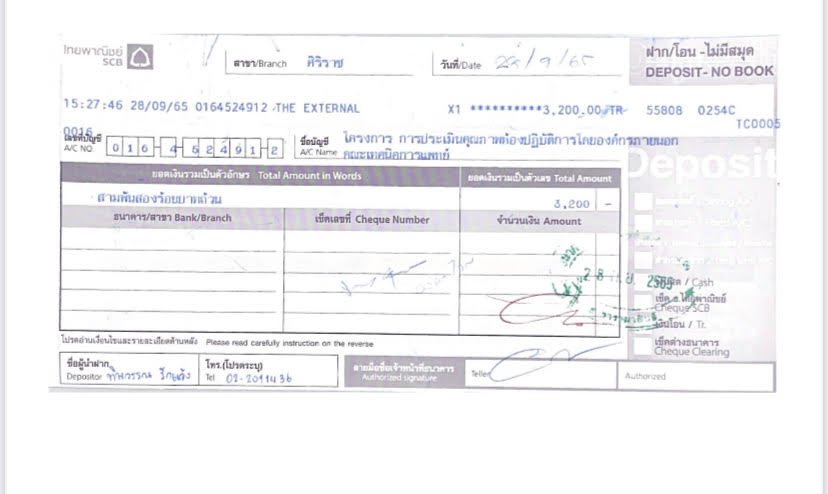 ไทยพาณิชย์
SCB
สาขา/Branch ศิริราช
วันที่/Date 28/9/65
ฝาก/โอน -ไม่มีสมุด
DEPOSIT- NO BOOK
15:27:46 28/09/65 0164524912 THE EXTERNAL X1 **********3,200.00 TR 55808 0254C
TC0005
0016
เลขที่บัญชี
A/C NO. 016-4-52491-2
ชื่อบัญชี
A/C Name
โครงการ การประเมินคุณภาพห้องปฏิบัติการโดยองค์กรภายนอก
คณะเทคนิคการแพทย์
Deposit
ยอดเงินรวมเป็นตัวอักษร Total Amount in Words ยอดเงินรวมเป็นตัวเลข Total Amount
สามพันสองร้อยบาทถ้วน 3,200 -
ธนาคาร/สาขา Bank/Branch เช็คเลขที่ Cheque Number จำนวนเงิน Amount
28 ก.ย. 2565
/ Cash
เช็ค ธ.ไทยพาณิชย์
Cheque SCB
เงินโอน / Tr.
เช็คต่างธนาคาร
Cheque Clearing
โปรดอ่านเงื่อนไขและรายละเอียดด้านหลัง Please read carefully instruction on the reverse
ชื่อผู้นำฝาก
Depositor
โทร.(โปรดระบุ)
Tel 02-2011436
ลายมือชื่อเจ้าหน้าที่ธนาคาร
Authorized signature
Teller
Authorized